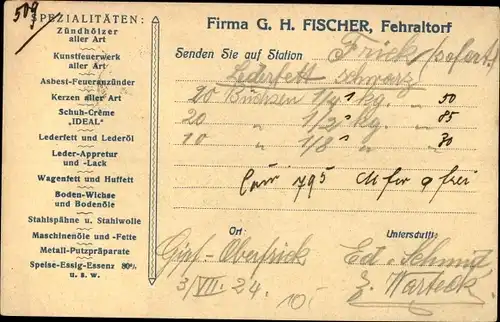 509
SPEZIALITÄTEN:
Zündhölzer
aller Art
Kunstfeuerwerk
aller Art
Asbest-Feueranzünder
Kerzen aller Art
Schuh-Crême
„IDEAL"
Lederfett und Lederöl
Leder-Appretur
und -Lack
Wagenfett und Huffett
Boden-Wichse
und Bodenöle
Stahlspähne u. Stahlwolle
Maschinenöle und -Fette
Metall-Putzpräparate
Speise-Essig-Essenz 80%
u. s. w.
Firma G. H. FISCHER, Fehraltorf
Senden Sie auf Station Frick (sofort)
Lederfett schwarz
20 Büchsen 1/4 Kg. „ 50
20 „ 1/2 Kg. „ 85
10 „ 1/8 „ „ 30
795 frei
Ort: Unterschrift:
Gipf-Oberfrick Ed. Schmid
3/VII. 24. 10.- z. Warteck